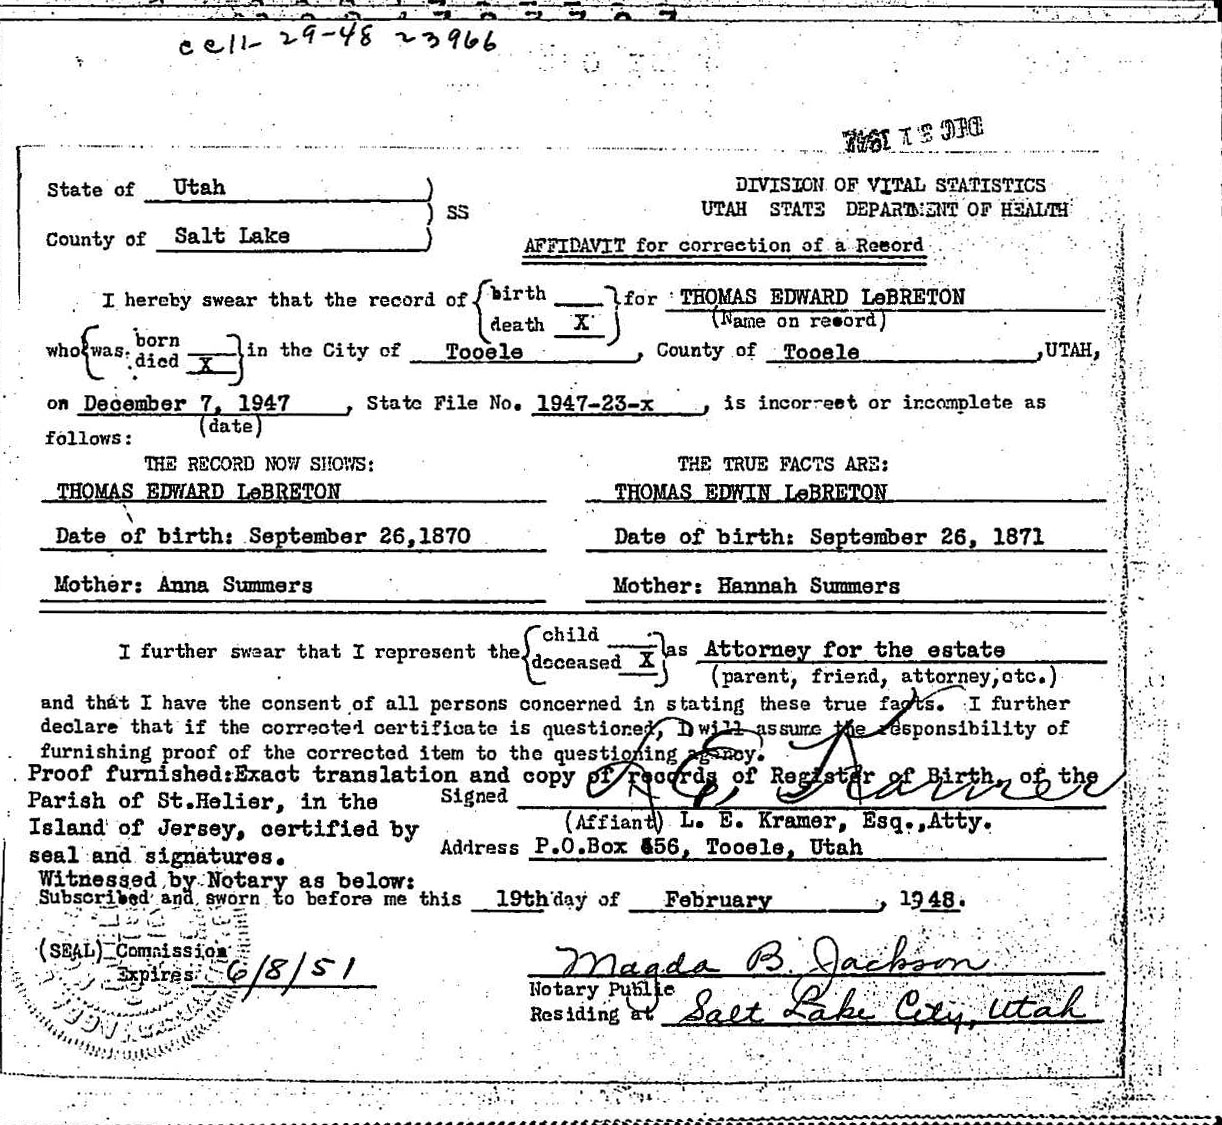 cell- 29-48 23966
DEC 31 1947
State of Utah ) DIVISION OF VITAL STATISTICS
) SS UTAH STATE DEPARTMENT OF HEALTH
County of Salt Lake )
AFFIDAVIT for correction of a Record
I hereby swear that the record of { birth ___ } for THOMAS EDWARD LeBRETON
death X (Name on record)
who { was born ___ } in the City of Tooele, County of Tooele, UTAH,
died X
on December 7, 1947, State File No. 1947-23-x, is incorrect or incomplete as
(date)
follows:
THE RECORD NOW SHOWS: THE TRUE FACTS ARE:
THOMAS EDWARD LeBRETON THOMAS EDWIN LeBRETON
Date of birth: September 26,1870 Date of birth: September 26, 1871
Mother: Anna Summers Mother: Hannah Summers
I further swear that I represent the { child ___ } as Attorney for the estate
deceased X (parent, friend, attorney,etc.)
and that I have the consent of all persons concerned in stating these true facts. I further
declare that if the corrected certificate is questioned, I will assume the responsibility of
furnishing proof of the corrected item to the questioning agency.
Proof furnished:Exact translation and copy of records of Register of Birth, of the
Parish of St.Helier, in the Signed L. E. Kramer
Island of Jersey, certified by (Affiant) L. E. Kramer, Esq.,Atty.
seal and signatures. Address P.O.Box 656, Tooele, Utah
Witnessed by Notary as below:
Subscribed and sworn to before me this 19th day of February, 1948.
(SEAL) Commission Magda B. Jackson
Expires 6/8/51 Notary Public
Residing at Salt Lake City, Utah